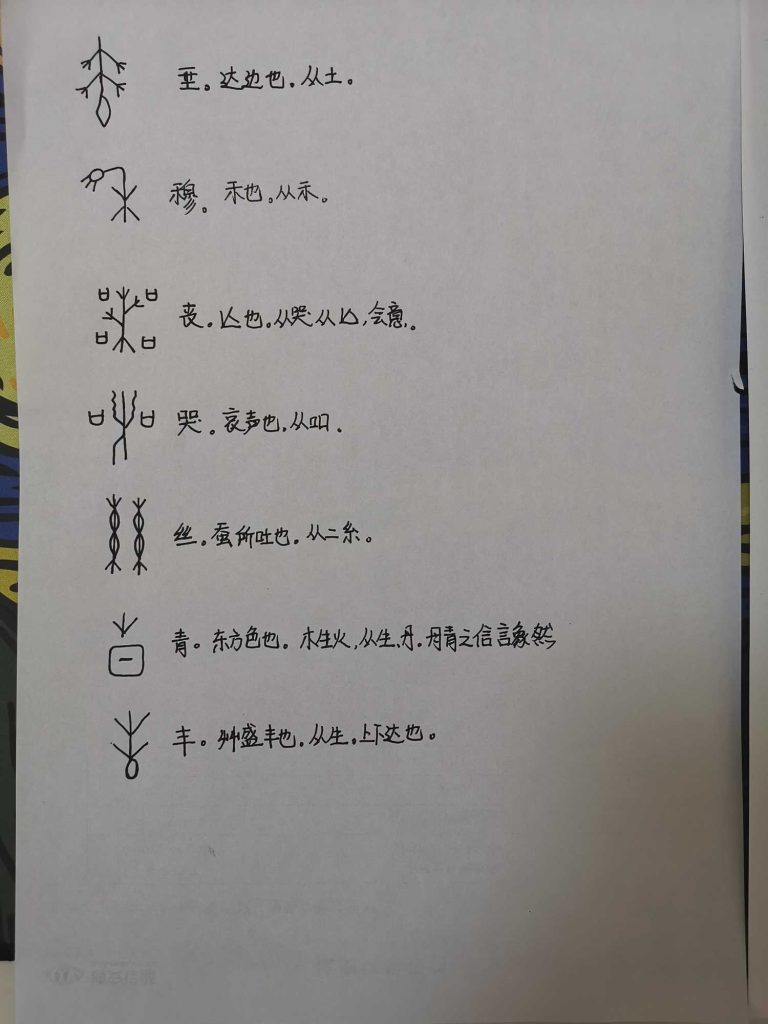 垂。达边也。从土。
穆。禾也。从禾。
丧。亾也。从哭从亾,会意。
哭。哀声也。从吅。
丝。蚕所吐也。从二糸。
青。东方色也。木生火,从生、丹。丹青之信言象然
丰。艸盛丰也。从生。上下达也。